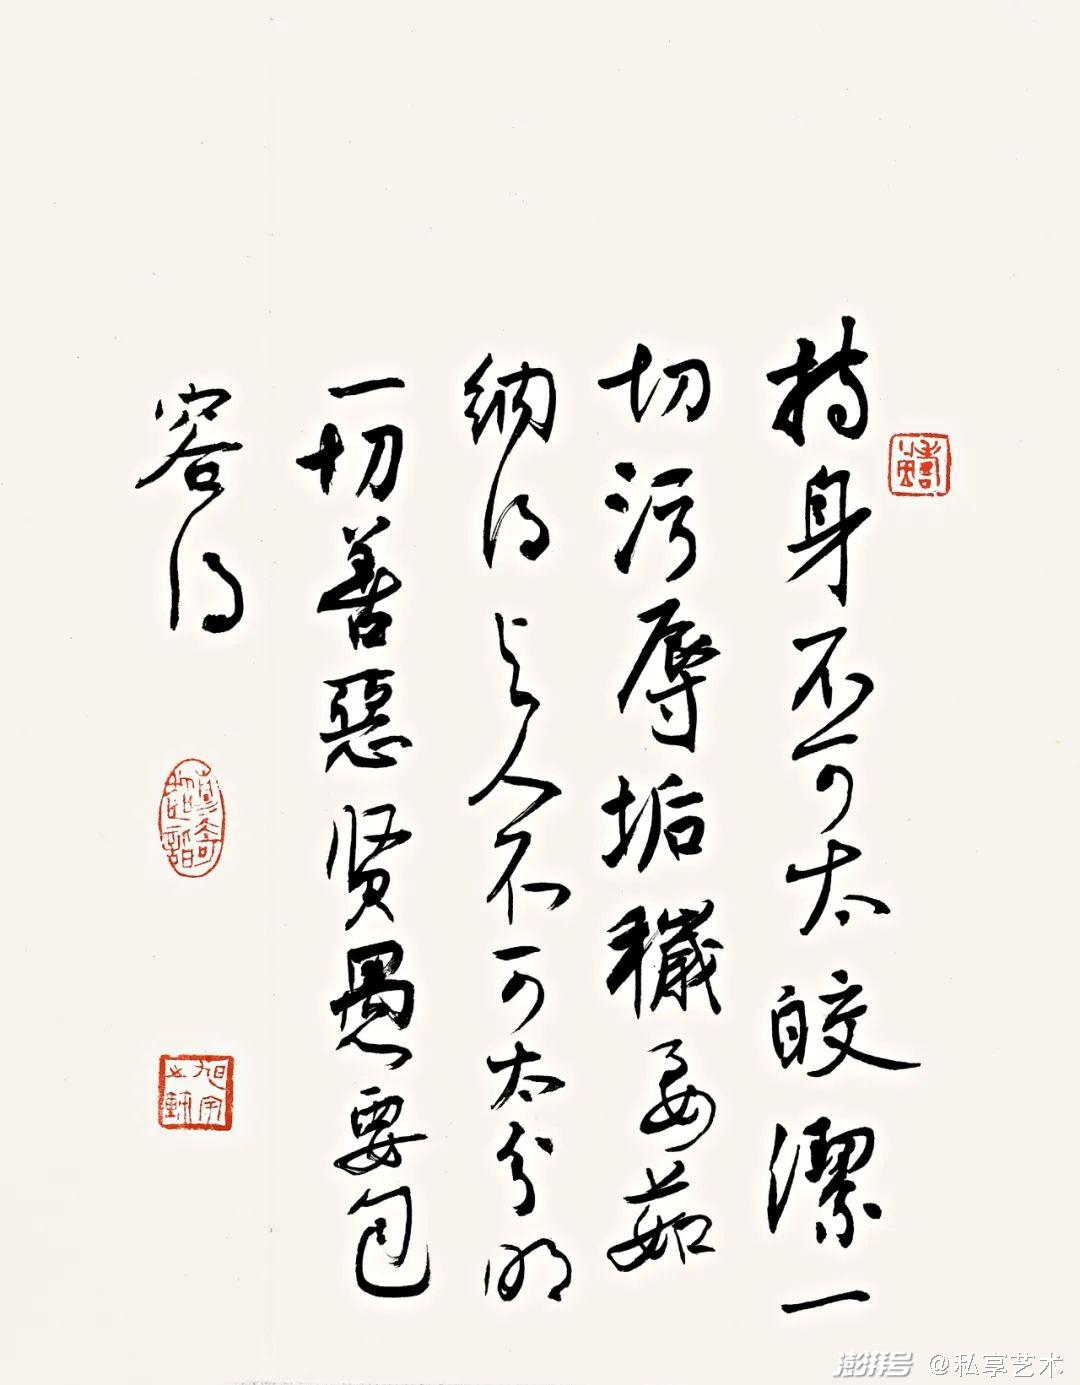 持身不可太皎潔一
切污辱垢穢要茹
納得与人不可太分明
一切善惡贤愚要包
容得
旭宇之鉥
澎湃号 @私享艺术